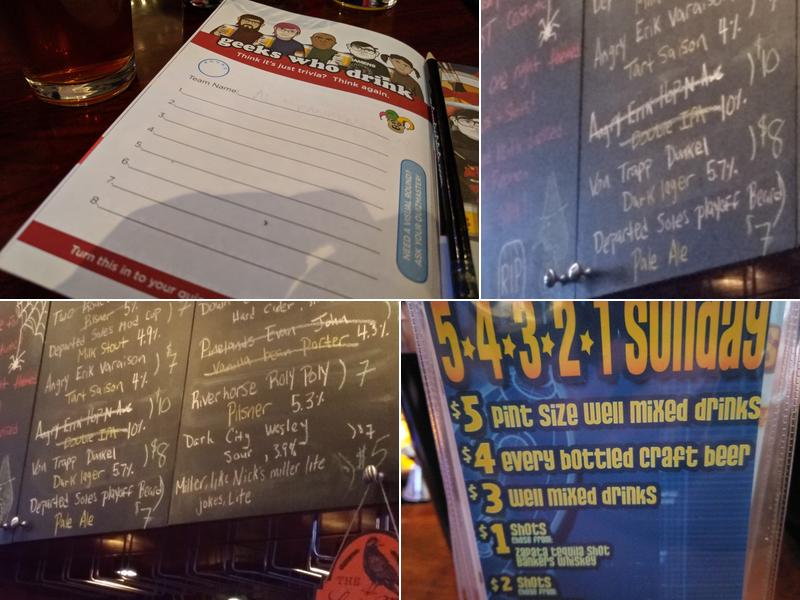 geeks who drink
Think it's just trivia? Think again.
Team Name:
1.
2.
3.
4.
5.
6.
7.
8.
NEED A VISUAL ROUND?
ASK YOUR QUIZMASTER!
Turn this in to your
Angry Erik Varaison
Tart Saison 4%
Angry Erik
10%
$10
Von Trapp Dunkel
Dark lager 5.7%
$8
Departed Soles playoff Beard
Pale Ale
$7
RIP
Two
Pilsner 5%
Departed Soles Mad Cap
Milk Stout 4.9%
Angry Erik Varaison
Tart Saison 4%
7
Angry Erik
10%
10
Von Trapp Dunkel
Dark lager 57%
$8
Departed Soles playoff Beard
Pale Ale
$7
Hard Cider
Pinelands Evan John
Vanilla bean Porter 4.3%
Riverhorse Roly Poly
Pilsner 5.3%
7
Dark City Wesley
Sour, 3.9%
$7
Miller, like Nick's miller lite
jokes, Lite
$5
THE
5★4★3★2★1 Sunday
$5 pint size well mixed drinks
$4 every bottled craft beer
$3 well mixed drinks
$1 Shots
chose from:
zapata tequila shot
Bankers whiskey
$2 Shots
chose from: